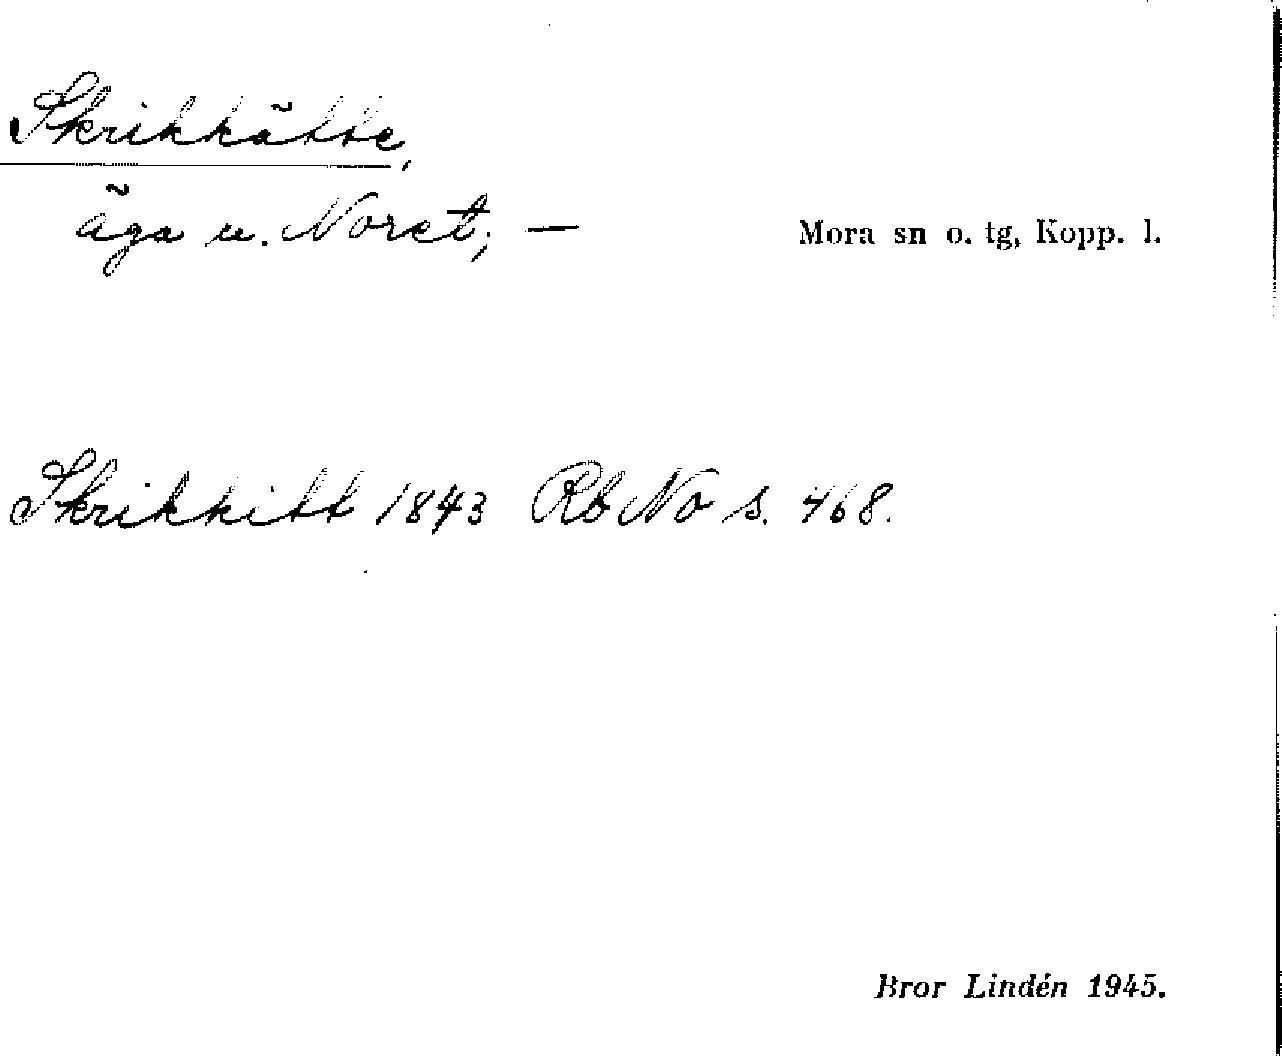 Skrikkätte,
äga u. Noret; — Mora sn o. tg, Kopp. l.
Skrikkitt 1843 Rb No s. 468.
Bror Lindén 1945.